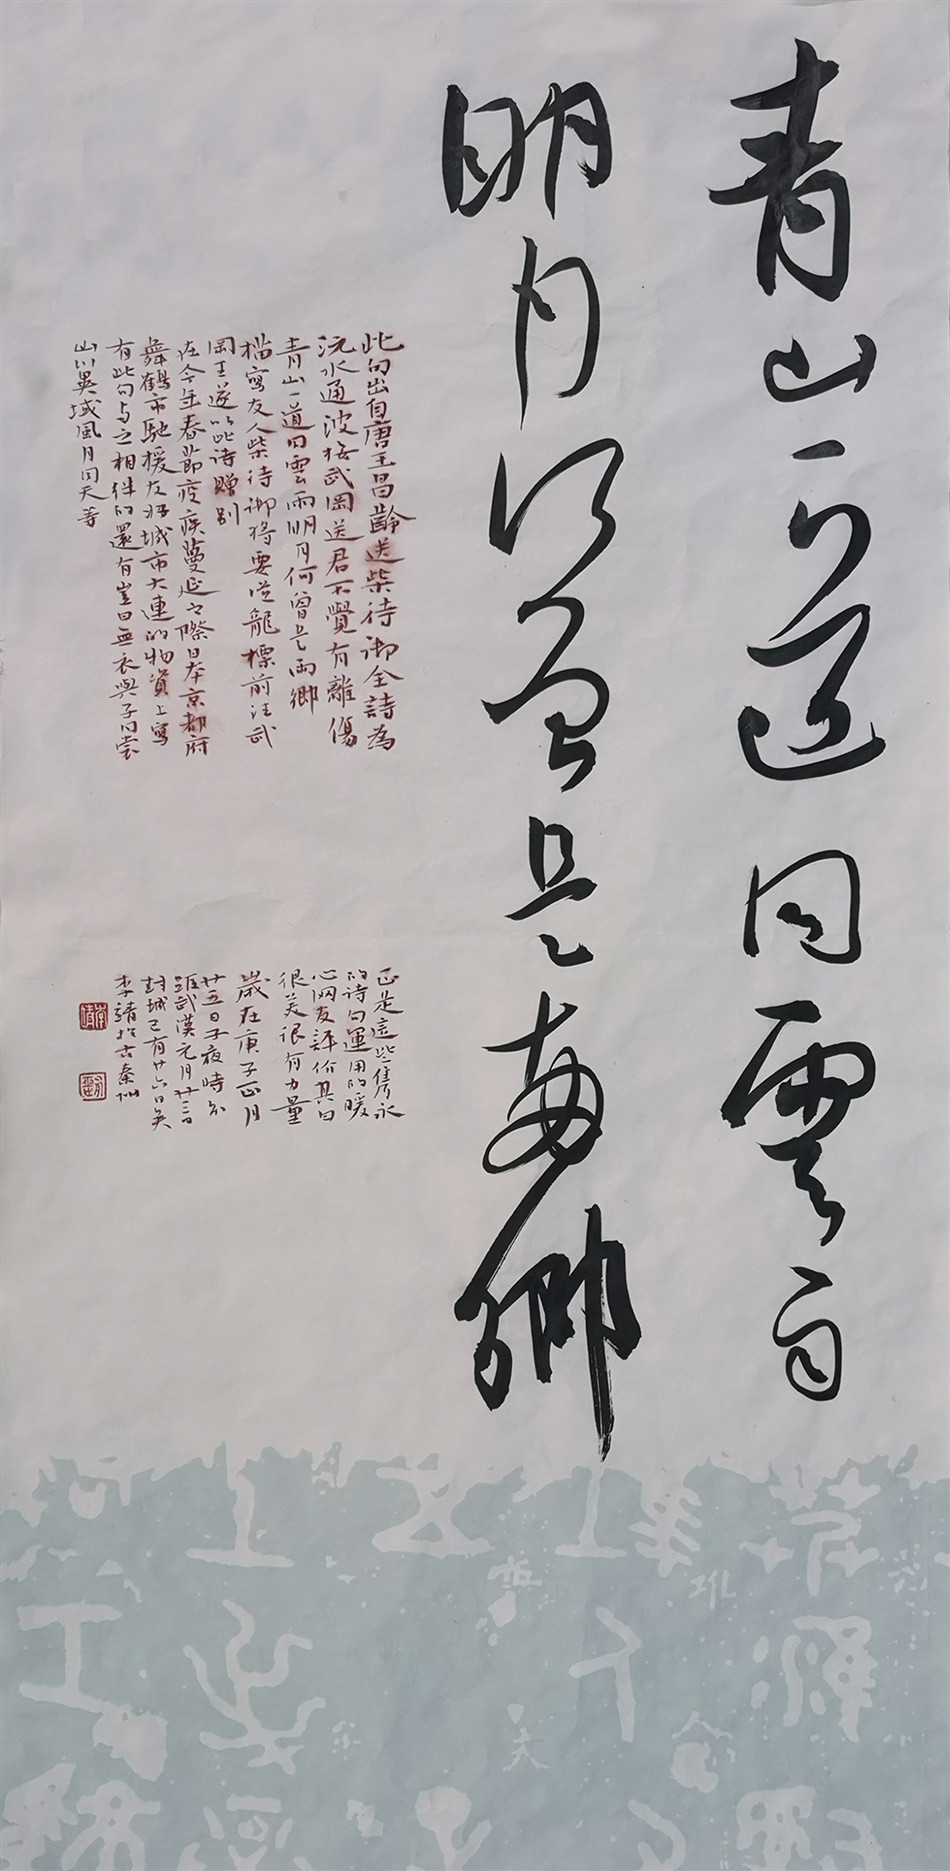 青山一道同雲雨
明月何曾是兩鄉
此句出自唐王昌齡送柴待御全詩為
沅水通波接武岡送君不覺有離傷
青山一道同雲雨明月何曾是兩鄉
檔寫友人柴待御將要從龍標前往武
岡王遂以此詩贈別
在今年春節疫疾蔓延之際日本京都府
舞鶴市馳援友好城市大連的物資上寫
有此句与之相伴的還有豈曰無衣與子同裳
山川異域風月同天等
正是這些雋永
的詩句運用的暖
心网友評价其曰
很美很有力量
歲在庚子正月
廿五日子夜時分
距武漢元月廿三日
封城已有廿六日矣
李靖於古秦州